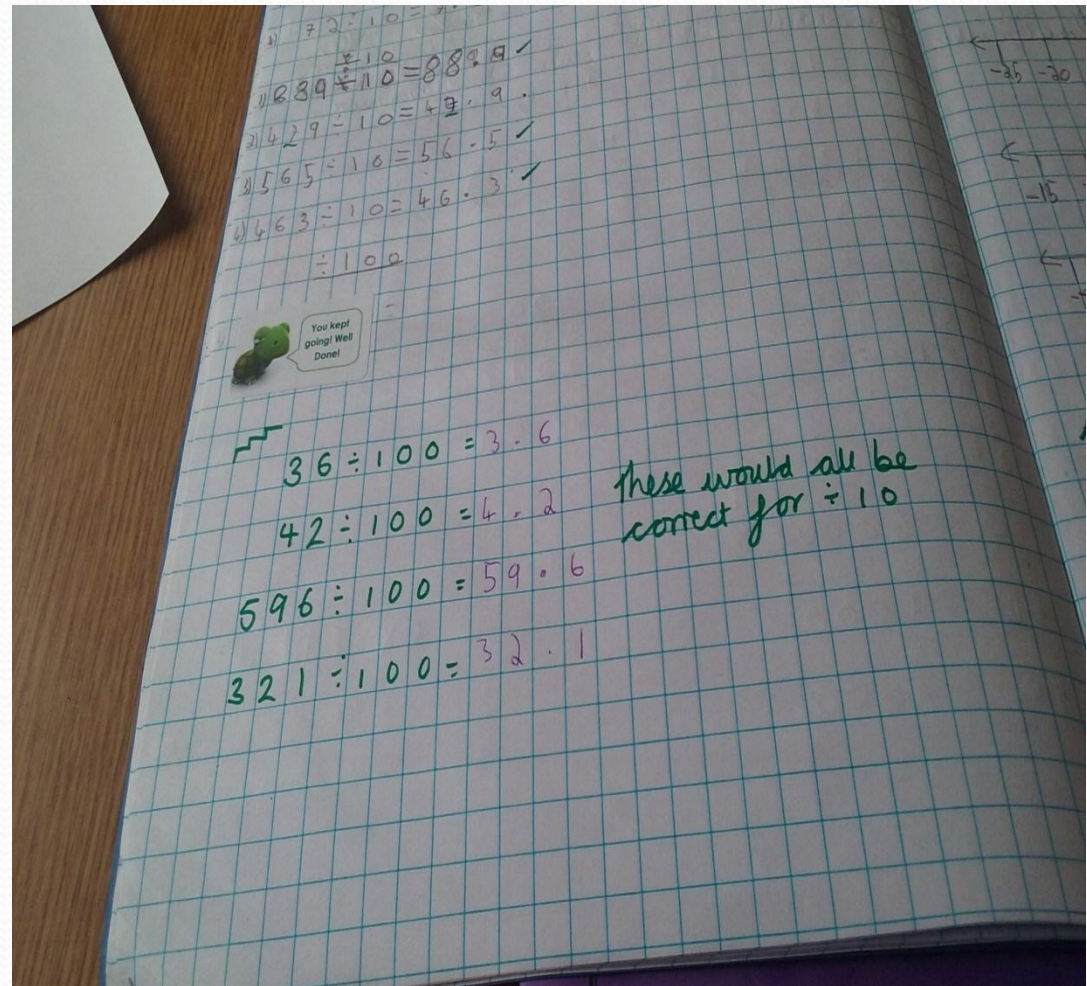 72÷10=7.
÷10
1) 889÷10=88.9 ✓
2) 429÷10=42.9 .
3) 565÷10=56.5 ✓
4) 463÷10=46.3 ✓
÷100
You kept
going! Well
Done!
36÷100=3.6
42÷100=4.2
596÷100=59.6
321÷100=32.1
These would all be
correct for ÷10
-25 -20
-15